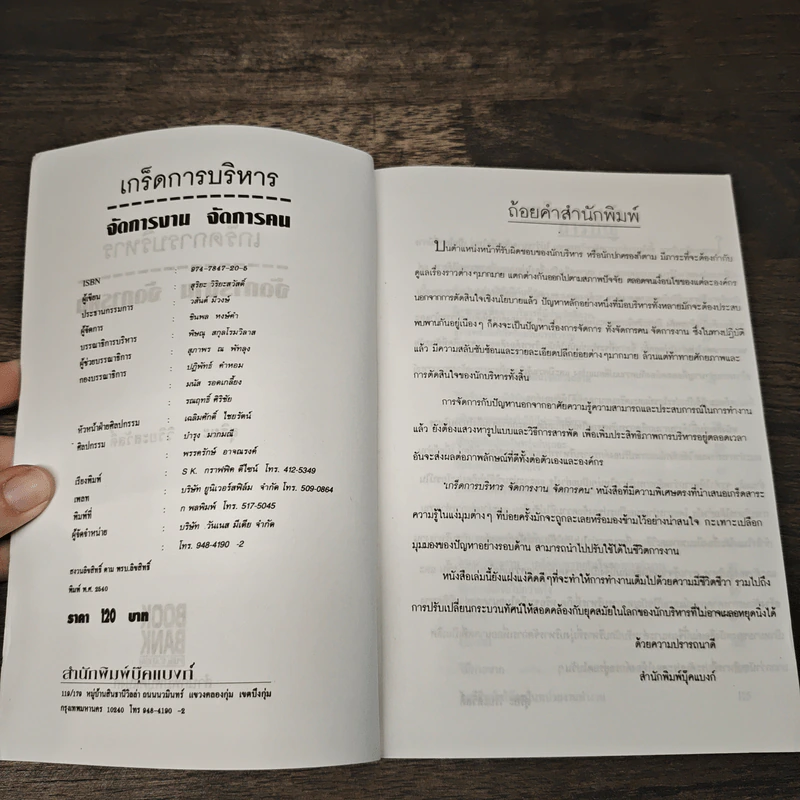 เกร็ดการบริหาร
จัดการงาน จัดการคน
ISBN : 974-7847-20-5
ผู้เขียน : สุริยะ วิริยะสวัสดิ์
ประธานกรรมการ : วสันต์ ม้วงษ์
ผู้จัดการ : ชินพล ทงษ์คำ
บรรณาธิการบริหาร : พิษณุ สกุลโรมวิลาส
ผู้ช่วยบรรณาธิการ : สุภาพร ณ พัทลุง
กองบรรณาธิการ : ปฏิพัทธ์ คำหอม
มนัส รอดเกลี้ยง
รณฤทธิ์ ศิริชัย
หัวหน้าฝ่ายศิลปกรรม : เฉลิมศักดิ์ ไชยรัตน์
ศิลปกรรม : บำรุง มากมณี
พรรครักษ์ อาจณรงค์
เรียงพิมพ์ : S K. กราฟฟิค ดีไซน์ โทร. 412-5349
เพลท : บริษัท ยูนิเวอร์สฟิล์ม จำกัด โทร. 509-0864
พิมพ์ที่ : ก พลพิมพ์ โทร. 517-5045
ผู้จัดจำหน่าย : บริษัท วันเนส มีเดีย จำกัด
: โทร. 948-4190 -2
สงวนลิขสิทธิ์ ตาม พรบ.ลิขสิทธิ์
พิมพ์ พ.ศ. 2540
ราคา 120 บาท
สำนักพิมพ์บุ๊คแบงก์
119/179 หมู่บ้านสินธานีวิลล่า ถนนนวมินทร์ แขวงคลองกุ่ม เขตบึงกุ่ม
กรุงเทพมหานคร 10240 โทร 948-4190 -2
ถ้อยคำสำนักพิมพ์
บนตำแหน่งหน้าที่รับผิดชอบของนักบริหาร หรือนักปกครองก็ตาม มีภาระที่จะต้องกำกับ
ดูแลเรื่องราวต่างๆมากมาย แตกต่างกันออกไปตามสภาพปัจจัย ตลอดจนเงื่อนไขของแต่ละองค์กร
นอกจากการตัดสินใจเชิงนโยบายแล้ว ปัญหาหลักอย่างหนึ่งที่มีอบริหารทั้งหลายมักจะต้องประสบ
พบพานกันอยู่เนืองๆ ก็คงจะเป็นปัญหาเรื่องการจัดการ ทั้งจัดการคน จัดการงาน ซึ่งในทางปฏิบัติ
แล้ว มีความสลับซับซ้อนและรายละเอียดปลีกย่อยต่างๆมากมาย ล้วนแต่ท้าทายศักยภาพและ
การตัดสินใจของนักบริหารทั้งสิ้น
การจัดการกับปัญหานอกจากอาศัยความรู้ความสามารถและประสบการณ์ในการทำงาน
แล้ว ยังต้องแสวงหารูปแบบและวิธีการสารพัด เพื่อเพิ่มประสิทธิภาพการบริหารอยู่ตลอดเวลา
อันจะส่งผลต่อภาพลักษณ์ที่ดีทั้งต่อตัวเองและองค์กร
"เกร็ดการบริหาร จัดการงาน จัดการคน" หนังสือที่มีความพิเศษตรงที่นำเสนอเกร็ดสาระ
ความรู้ในแง่มุมต่างๆ ที่บ่อยครั้งมักจะถูกละเลยหรือมองข้ามไว้อย่างน่าสนใจ กะเทาะเปลือก
มุมมองของปัญหาอย่างรอบด้าน สามารถนำไปปรับใช้ได้ในชีวิตการงาน
หนังสือเล่มนี้ยังแฝงแง่คิดดีๆที่จะทำให้การทำงานเต็มไปด้วยความมีชีวิตชีวา รวมไปถึง
การปรับเปลี่ยนกระบวนทัศน์ให้สอดคล้องกับยุคสมัยในโลกของนักบริหารที่ไม่อาจเผลอหยุดนิ่งได้
ด้วยความปรารถนาดี
สำนักพิมพ์บุ๊คแบงก์